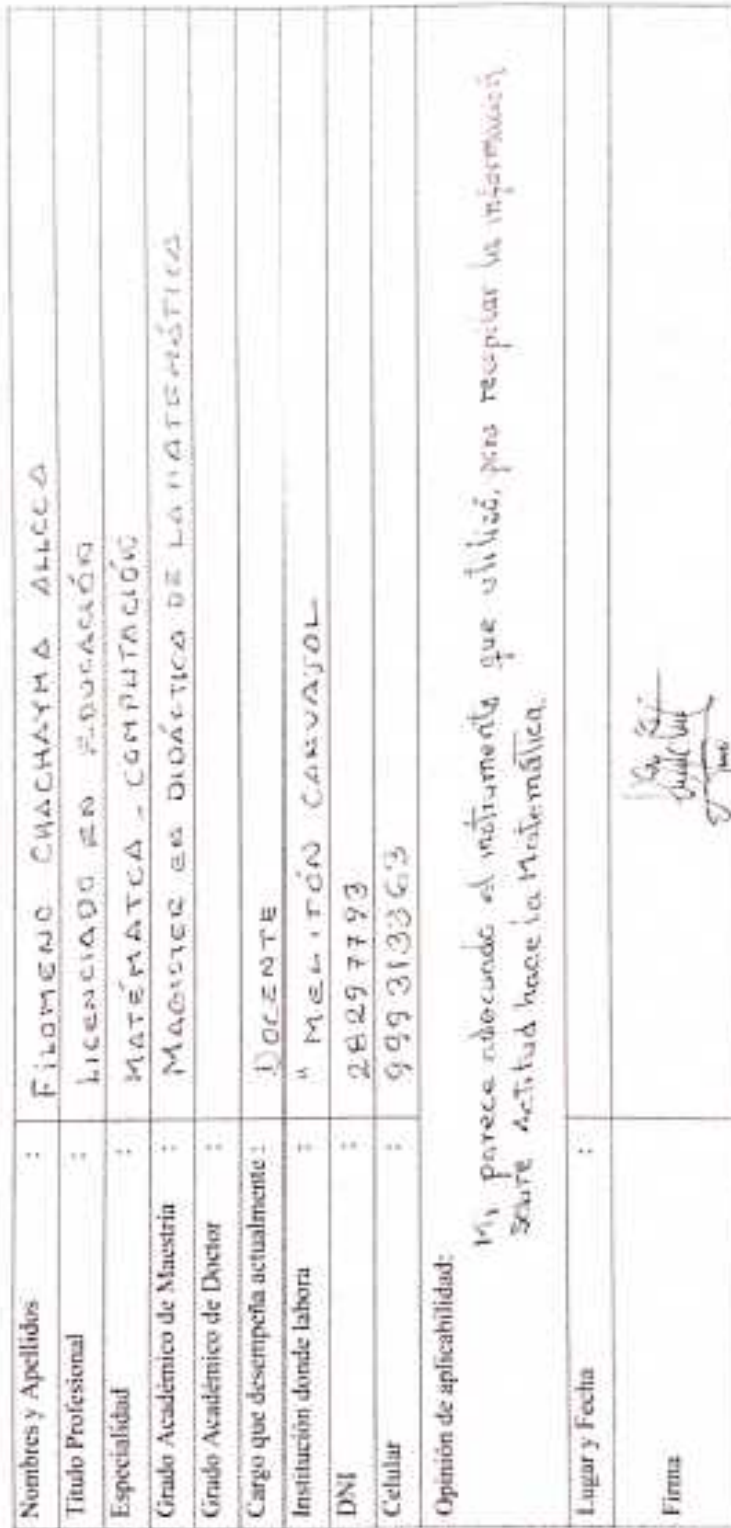 Nombres y Apellidos : FILOMENO CHACHAYMA ALLCCA
Título Profesional : LICENCIADO EN EDUCACIÓN
Especialidad : MATÉMATCA - COMPUTACIÓN
Grado Académico de Maestría : MAGISTER EN DIDÁCTICA DE LA MATEMÁTICA
Grado Académico de Doctor :
Cargo que desempeña actualmente : DOCENTE
Institución donde labora : " MELITÓN CARVAJOL
DNI : 28297793
Celular : 999313363
Opinión de aplicabilidad:
parece adecuado el instrumento que utilizó, para recopilar la información
sobre Actitud hace la Matemática.
Lugar y Fecha :
Firma